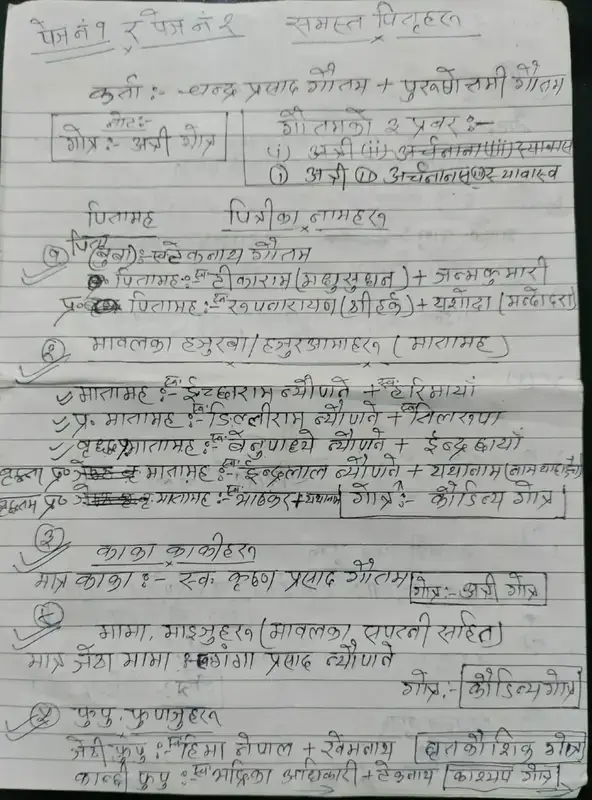 पेज नं १ र पेज नं २ समस्त पितृहरु
कर्ता :- चन्द्र प्रसाद गौतम + पुरुषोत्तमी गौतम
नोट:-
गोत्र :- अत्री गोत्र
गौतमको ३ प्रवर :-
(i) अत्री (ii) अर्चनाना (iii)
(i) अत्री (ii) अर्चनानस श्यावास्व
पितामह पित्रीका नामहरु
१ पिता (बुबा) :- स्व टेकनाथ गौतम
पितामह :- स्व टीकाराम (मधुसुधन) + जन्मकुमारी
प्र० पितामह :- स्व रुपनारायण (श्रीहर्क) + यशोदा (मन्दोदरा)
२ मावलका हजुरबा/हजुरआमाहरु (मातामह)
मातामह :- स्व ईच्छाराम न्यौपाने + स्व हरिमाया
प्र. मातामह :- स्व डिल्लीराम न्यौपाने + स्व तिलरुपा
वृद्धप्रमातामह :- स्व बेनुपाध्ये न्यौपाने + ईन्द्रछाया
प्र० मातामह :- स्व ईन्द्रलाल न्यौपाने + यथानाम
प्र० मातामह :- स्व भाष्कर + यथानाम गोत्र :- कौडिन्य गोत्र
३ काका काकीहरु
मात्र काका :- स्व. कृष्ण प्रसाद गौतम गोत्र :- अत्री गोत्र
४ मामा, माइजुहरु (मावलका सपत्नी सहित)
मात्र जेठा मामा :- गंगा प्रसाद न्यौपाने
गोत्र :- कौडिन्य गोत्र
५ फुपु, फुपाजुहरु
जेठी फुपु :- स्व हिमा नेपाल + खेमनाथ घृतकौशिक गोत्र
कान्छी फुपु :- स्व भद्रिका अधिकारी + टेकनाथ काश्यप गोत्र